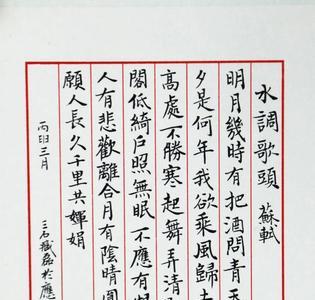 水調歌頭 蘇軾
明月幾時有把酒問青天
夕是何年我欲乘風歸去
高處不勝寒起舞弄清
閣低綺戶照無眠不應有
人有悲歡離合月有陰晴圓
願人長久千里共嬋娟
丙申三月